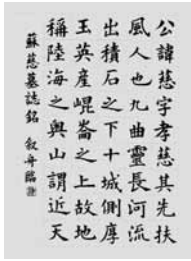 公諱慈字孝慈其先扶
風人也九曲靈長河流
出積石之下十城側厚
玉英產崐崙之上故地
稱陸海之輿山謂近天
蘇慈墓誌銘 叙舟臨